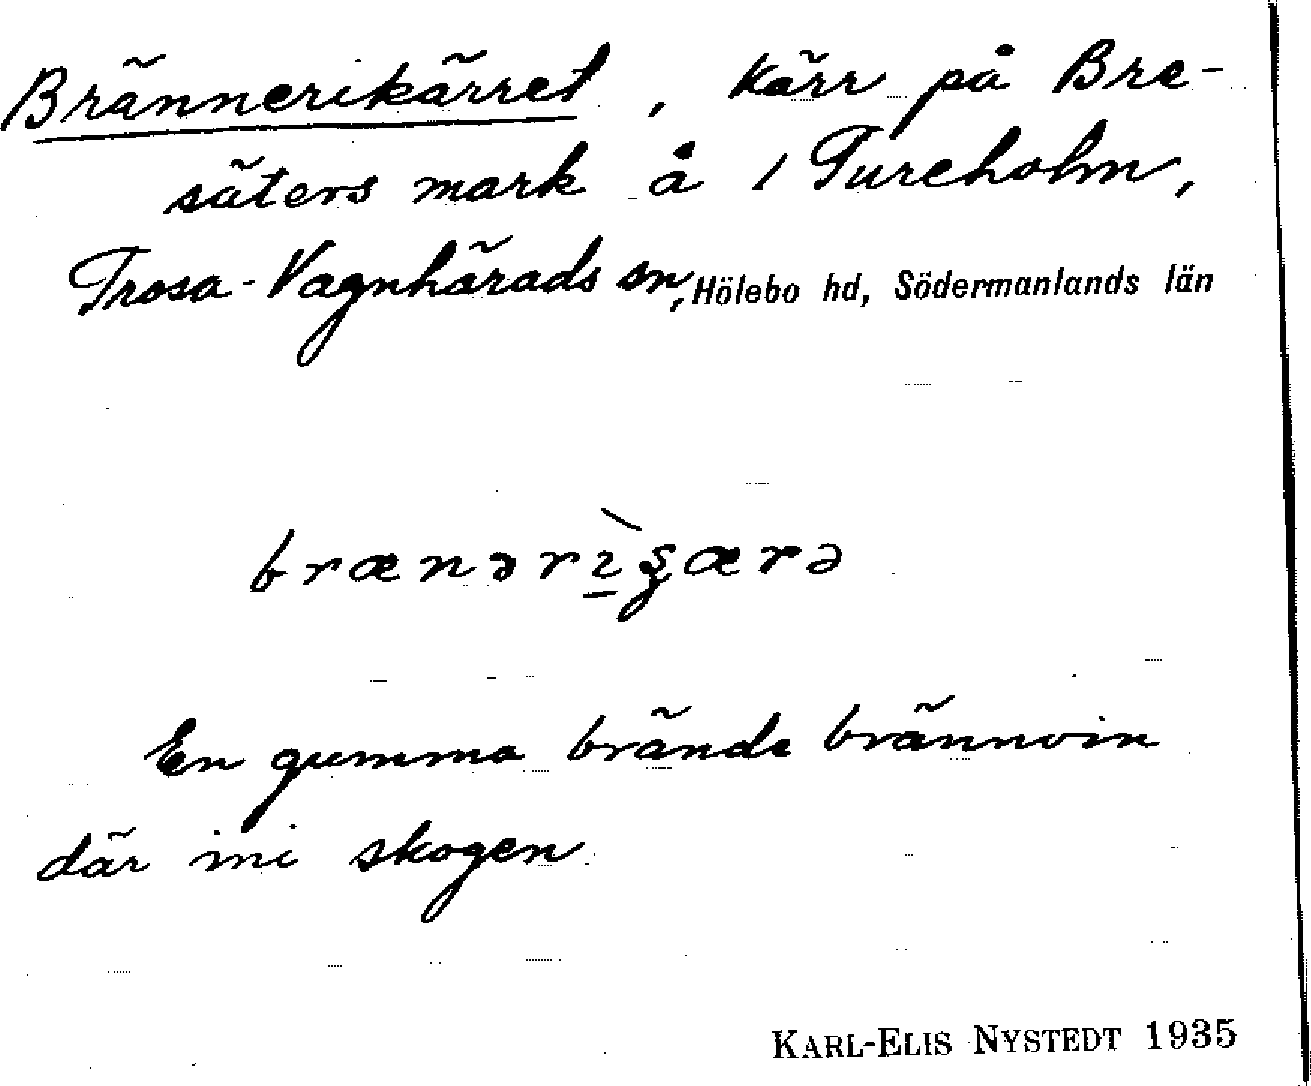 Brännerikärret, kärr på Bre-
säters mark å 1 Tureholm,
Trosa-Vagnhärads sn, Hölebo hd, Södermanlands län
En gumma brände brännvin
där ini skogen
KARL-ELIS NYSTEDT 1935